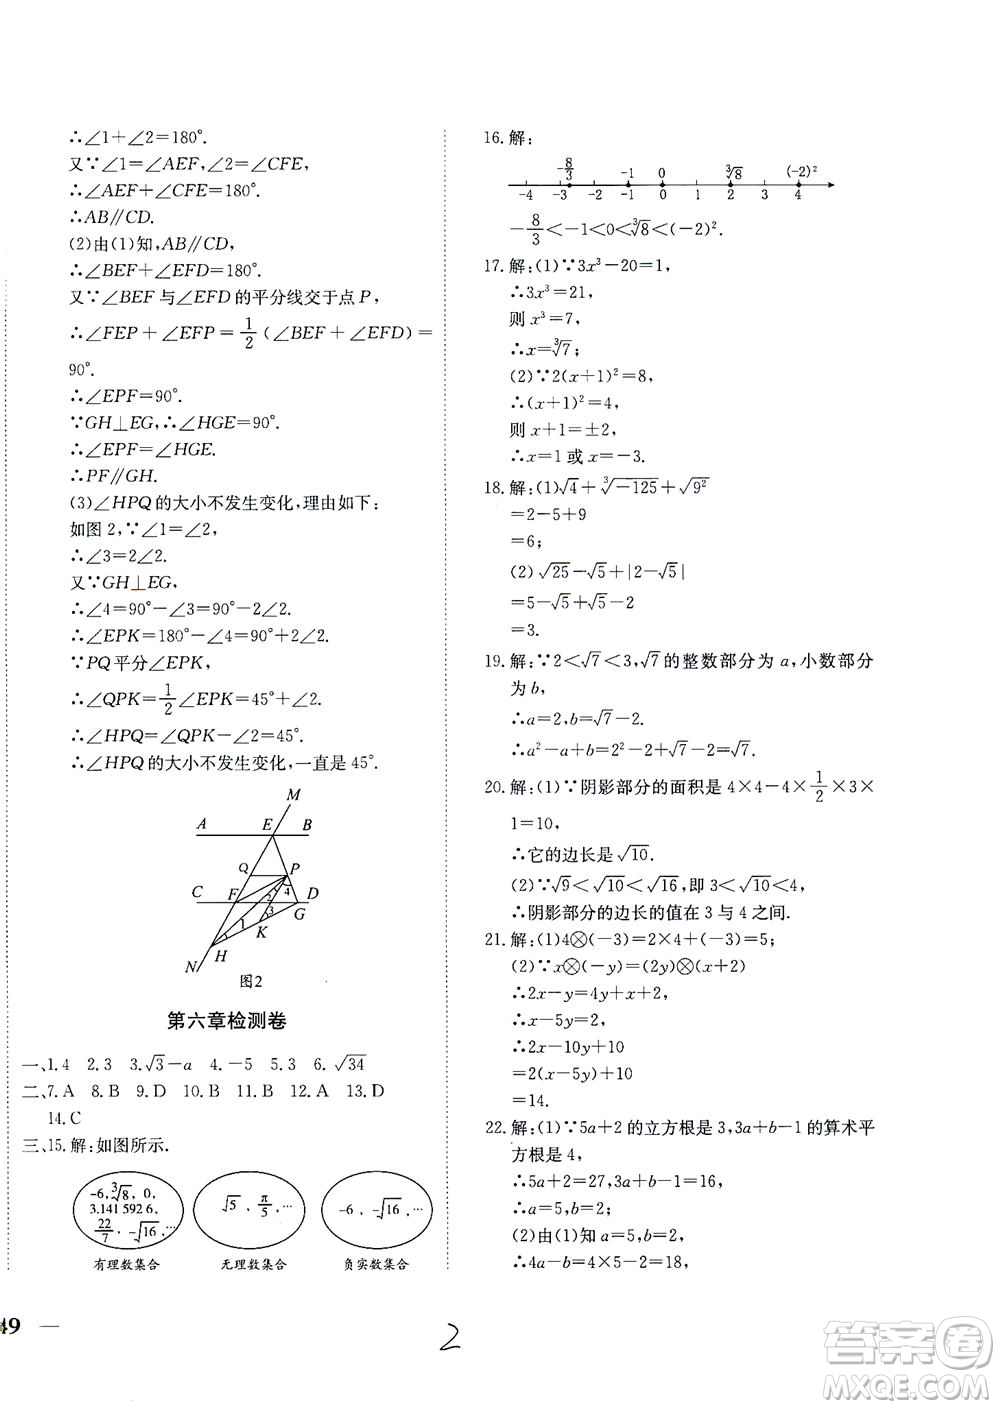 ∴∠1+∠2=180°.
又∵∠1=∠AEF,∠2=∠CFE,
∴∠AEF+∠CFE=180°.
∴AB∥CD.
(2)由(1)知,AB∥CD,
∴∠BEF+∠EFD=180°.
又∵∠BEF与∠EFD的平分线交于点P,
∴∠FEP+∠EFP=1/2(∠BEF+∠EFD)=
90°.
∴∠EPF=90°.
∵GH⊥EG,∴∠HGE=90°.
∴∠EPF=∠HGE.
∴PF∥GH.
(3)∠HPQ的大小不发生变化,理由如下:
如图2,∵∠1=∠2,
∴∠3=2∠2.
又∵GH⊥EG,
∴∠4=90°-∠3=90°-2∠2.
∴∠EPK=180°-∠4=90°+2∠2.
∵PQ平分∠EPK,
∴∠QPK=1/2∠EPK=45°+∠2.
∴∠HPQ=∠QPK-∠2=45°.
∴∠HPQ的大小不发生变化,一直是45°.
M
A E B
Q P
2 4
C F D
3 G
1 K
H
N
图2
第六章检测卷
一、1.4 2.3 3.√3-a 4.-5 5.3 6.√34
二、7.A 8.B 9.D 10.B 11.B 12.A 13.D
14.C
三、15.解:如图所示.
-6,∛8,0,
3.141 592 6,
22/7,-√16,…
有理数集合
√5,π/5,…
无理数集合
-6,-√16,…
负实数集合
49 —
2
16.解:
-8/3 -1 0 ∛8 (-2)²
-4 -3 -2 -1 0 1 2 3 4
-8/3<-1<0<∛8<(-2)².
17.解:(1)∵3x³-20=1,
∴3x³=21,
则x³=7,
∴x=∛7;
(2)∵2(x+1)²=8,
∴(x+1)²=4,
则x+1=±2,
∴x=1或x=-3.
18.解:(1)√4+∛-125+√9²
=2-5+9
=6;
(2)√25-√5+|2-√5|
=5-√5+√5-2
=3.
19.解:∵2<√7<3,√7的整数部分为a,小数部分
为b,
∴a=2,b=√7-2.
∴a²-a+b=2²-2+√7-2=√7.
20.解:(1)∵阴影部分的面积是4×4-4×1/2×3×
1=10,
∴它的边长是√10.
(2)∵√9<√10<√16,即3<√10<4,
∴阴影部分的边长的值在3与4之间.
21.解:(1)4⊗(-3)=2×4+(-3)=5;
(2)∵x⊗(-y)=(2y)⊗x,
∴2x-y=4y+x,
∴x-5y=0,
∴2x-10y+14
=2(x-5y)+14
=14.
22.解:(1)∵5a+2的立方根是3,3a+b-1的算术平
方根是4,
∴5a+2=27,3a+b-1=16,
∴a=5,b=2;
(2)由(1)知a=5,b=2,
∴4a-b=4×5-2=18,
答案卷
MXQE.COM